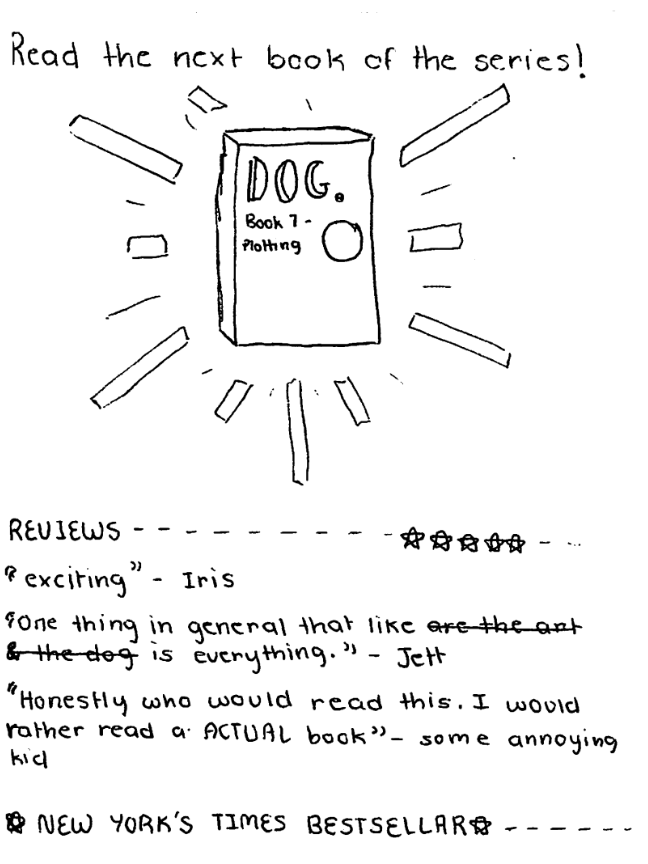 Read the next book of the series!
DOG.
Book 7 -
Plotting
REVIEWS - - - - - - - - - ☆☆☆☆☆ - ...
"exciting" - Iris
"One thing in general that like ~~are the art~~
~~& the dog~~ is everything." - Jett
"Honestly who would read this. I would
rather read a ACTUAL book" - some annoying
kid
☆ NEW YORK'S TIMES BESTSELLAR☆ - - - - - -